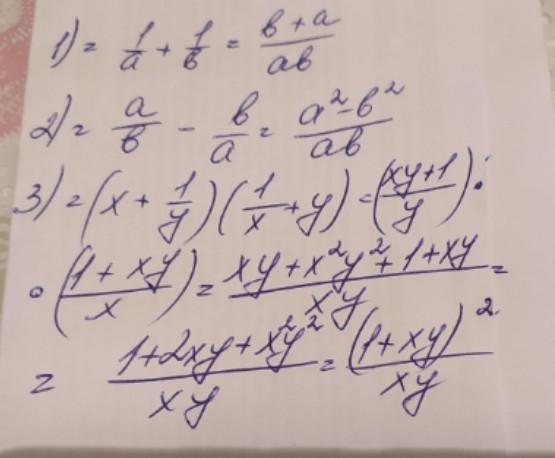 1) = 1/a + 1/в = в + a/aв
2) = a/в - в/a = a² - в²/aв
3) = (x + 1/y)(1/x + y) = (xy + 1/y) ·
· (1 + xy/x) = xy + x²y² + 1 + xy/xy =
= 1 + 2xy + x²y²/xy = (1 + xy)²/xy